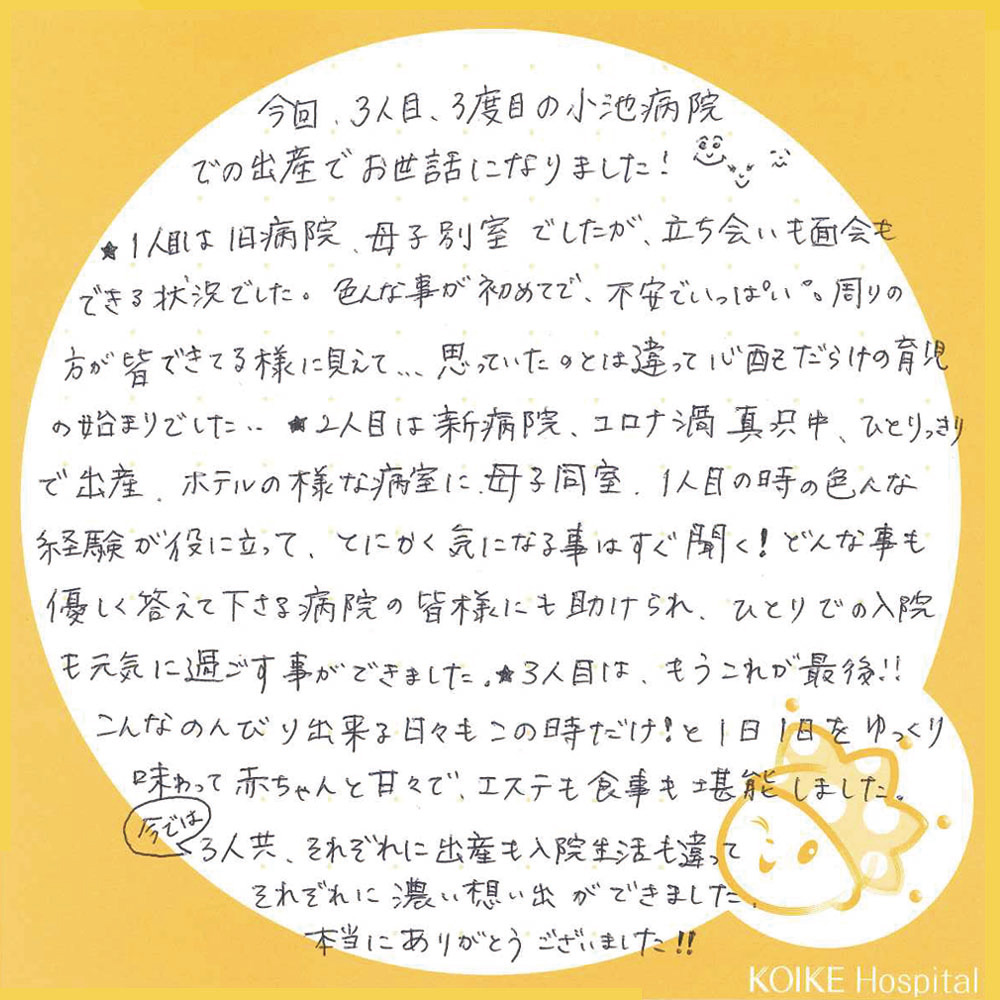 今回、3人目、3度目の小池病院
での出産でお世話になりました!
★1人目は旧病院、母子別室でしたが、立ち会いも面会も
できる状況でした。色んな事が初めてで、不安でいっぱい。周りの
方が皆できてる様に見えて... 思っていたのとは違って心配だらけの育児
の始まりでした.. ★2人目は新病院、コロナ渦真只中、ひとりっきり
で出産、ホテルの様な病室に、母子同室、1人目の時の色んな
経験が役に立って、とにかく気になる事はすぐ聞く!どんな事も
優しく答えて下さる病院の皆様にも助けられ、ひとりでの入院
も元気に過ごす事ができました。★3人目は、もうこれが最後!!
こんなのんびり出来る日々もこの時だけ!と1日1日をゆっくり
味わって赤ちゃんと甘々で、エステも食事も堪能しました。
今では
3人共、それぞれに出産も入院生活も違って
それぞれに濃い想い出ができました。
本当にありがとうございました!!
KOIKE Hospital